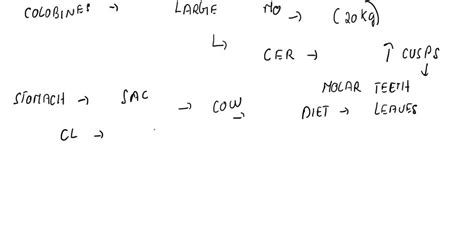 COLOBINES → LARGE NO → (20kg)
↳ CER → ↑ CUSPS
↓
MOLAR TEETH
STOMACH → SAC → COW → DIET → LEAVES
CL →